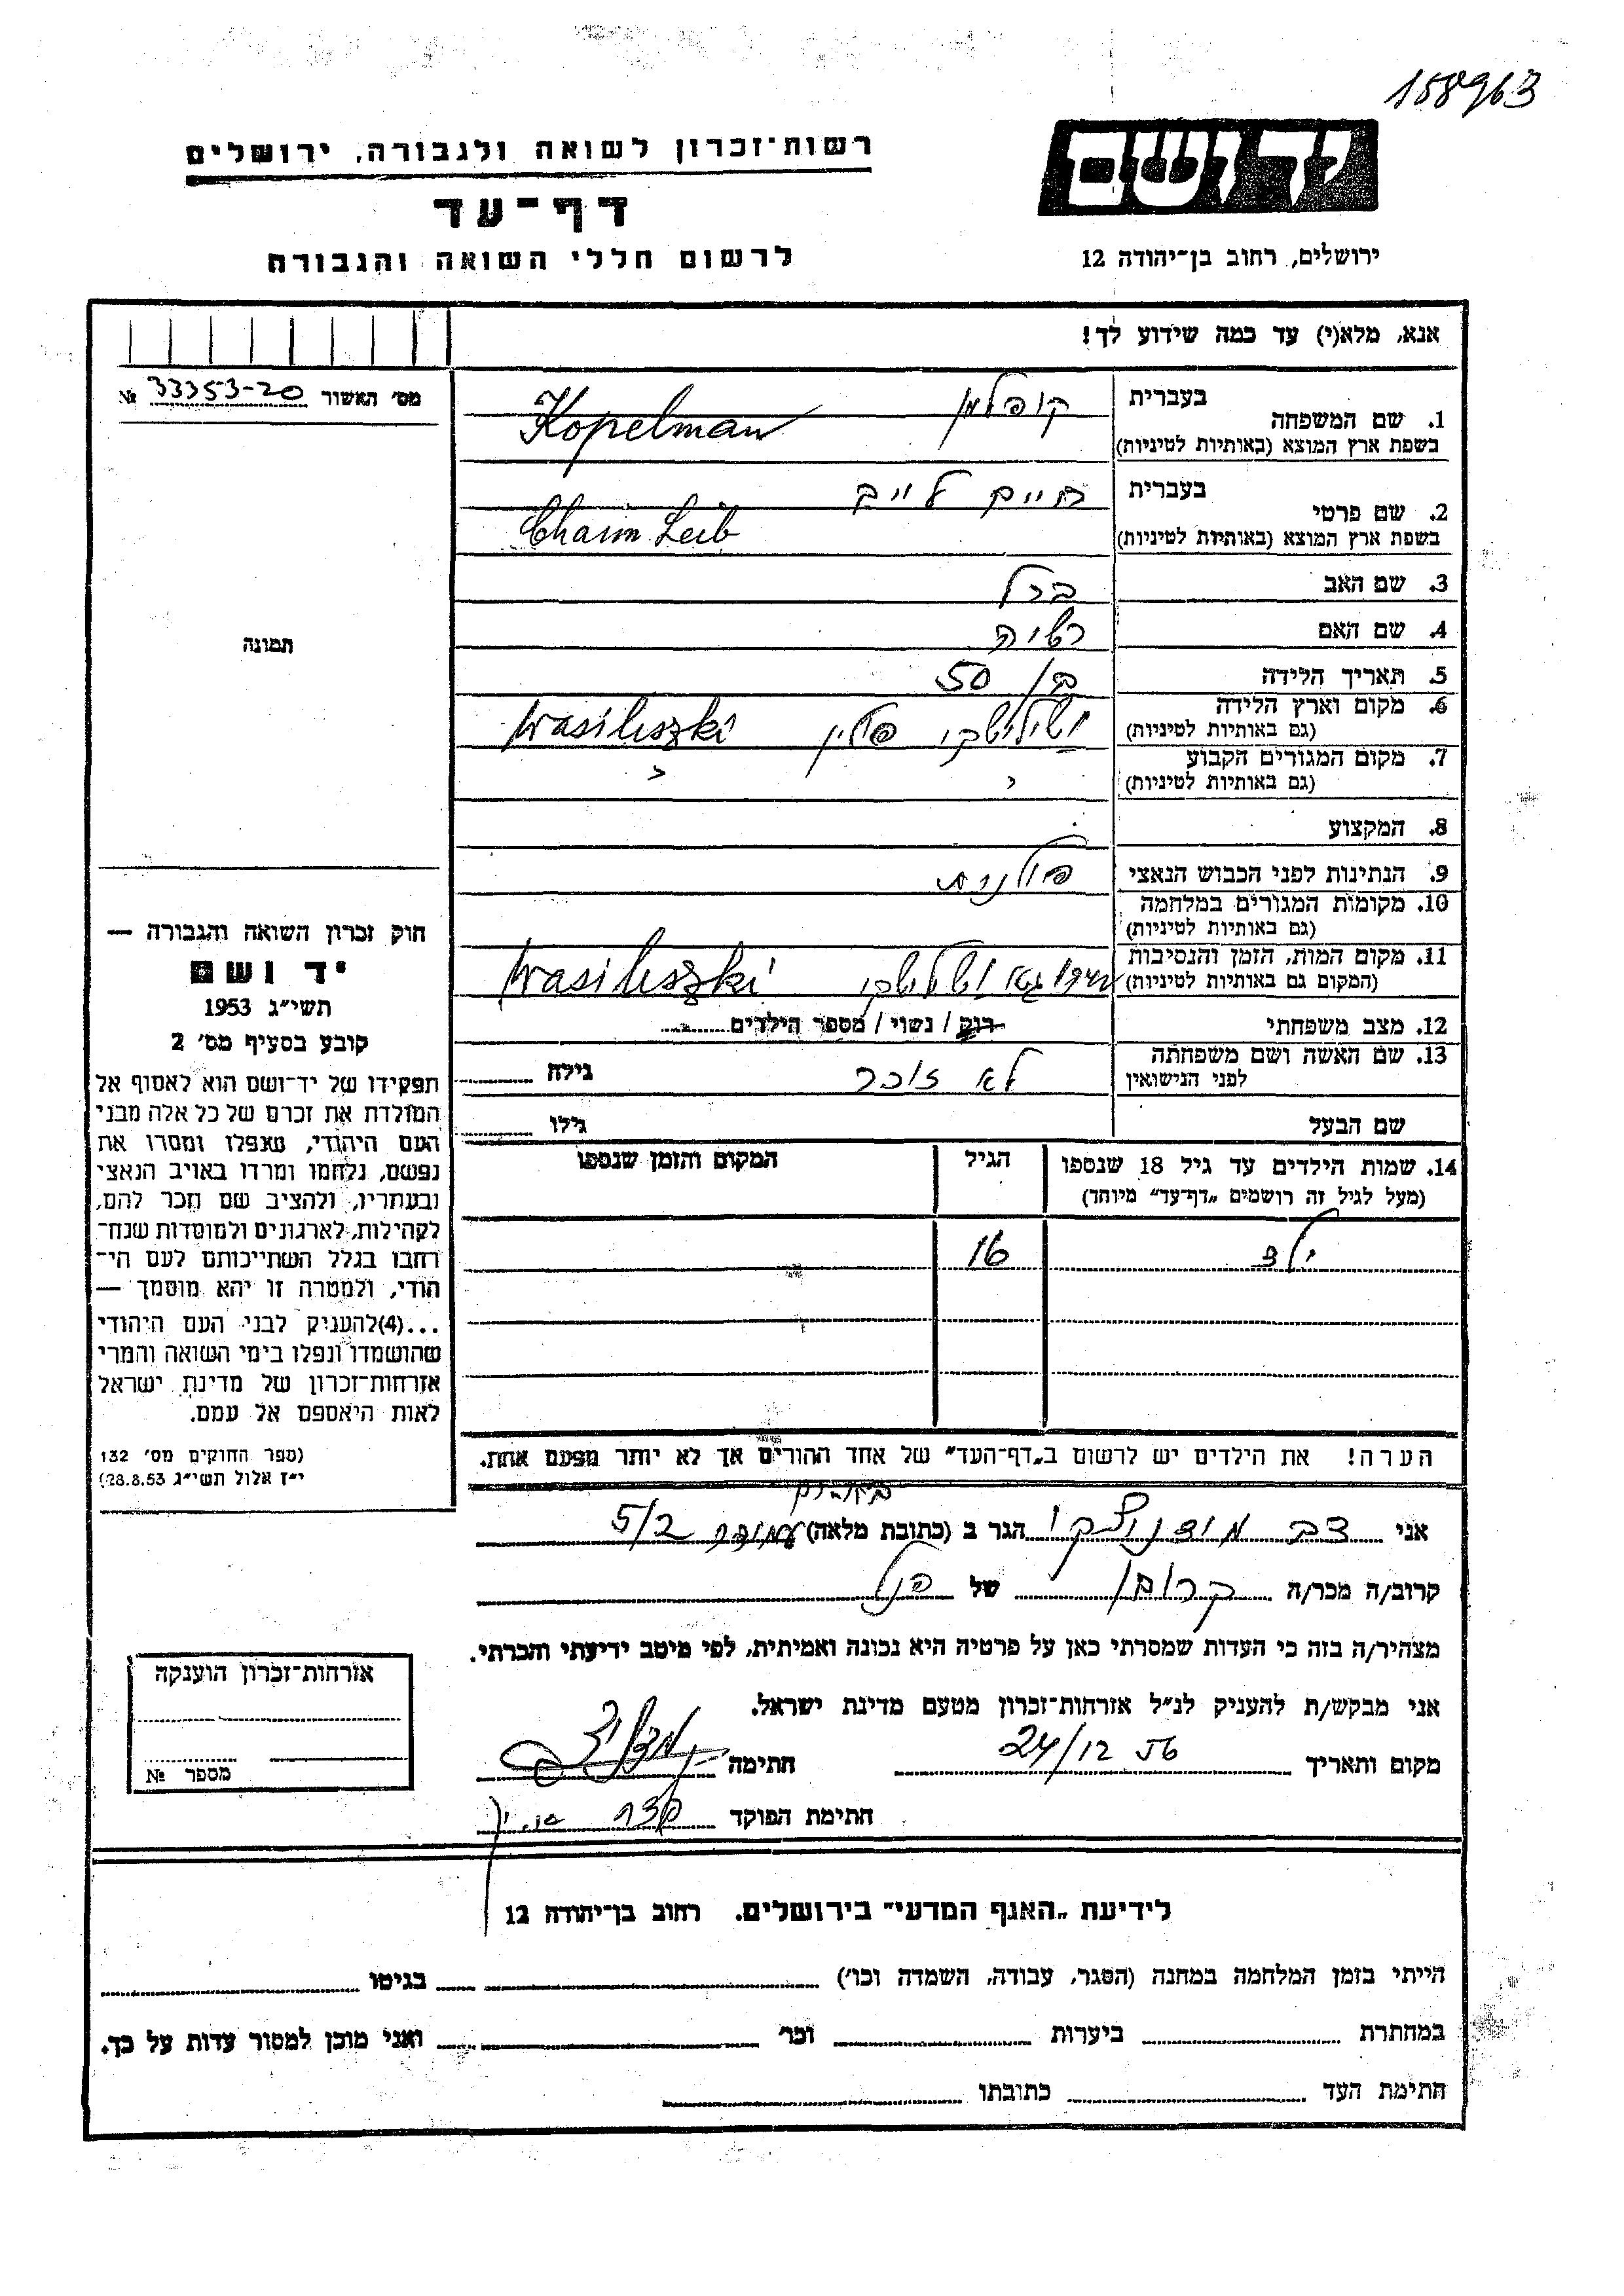 158963
יד ושם
רשות־זכרון לשואה ולגבורה, ירושלים
דף־עד
לרשום חללי השואה והגבורה
ירושלים, רחוב בן־יהודה 12
אנא, מלא(י) עד כמה שידוע לך!
מס׳ האשור 33353-20 №
תמונה
1. שם המשפחה בעברית קופלמן
בשפת ארץ המוצא (באותיות לטיניות) Kopelman
2. שם פרטי בעברית חיים לייב
בשפת ארץ המוצא (באותיות לטיניות) Chaim Leib
3. שם האב ברל
4. שם האם
5. תאריך הלידה בן 50
6. מקום וארץ הלידה וסילישקי פולין Wasiliszki
(גם באותיות לטיניות)
7. מקום המגורים הקבוע
(גם באותיות לטיניות)
8. המקצוע
9. הנתינות לפני הכבוש הנאצי פולנית
10. מקומות המגורים במלחמה
(גם באותיות לטיניות)
11. מקום המות, הזמן והנסיבות וסילישקי Wasiliszki
(המקום גם באותיות לטיניות)
12. מצב משפחתי רווק / נשוי / מספר הילדים
13. שם האשה ושם משפחתה לא זוכר גילה
לפני הנישואין
שם הבעל גילו
14. שמות הילדים עד גיל 18 שנספו הגיל המקום והזמן שנספו
(מעל לגיל זה רושמים „דף־עד״ מיוחד)
ילד 16
הערה! את הילדים יש לרשום ב„דף־העד״ של אחד ההורים אך לא יותר מפעם אחת.
חוק זכרון השואה והגבורה —
יד ושם
תשי״ג 1953
קובע בסעיף מס׳ 2
תפקידו של יד־ושם הוא לאסוף אל
המולדת את זכרם של כל אלה מבני
העם היהודי, שנפלו ומסרו את
נפשם, נלחמו ומרדו באויב הנאצי
ובעוזריו, ולהציב שם וזכר להם,
לקהילות, לארגונים ולמוסדות שנח־
רחבו בגלל השתייכותם לעם הי־
הודי, ולמטרה זו יהא מוסמך —
...(4)להעניק לבני העם היהודי
שהושמדו ונפלו בימי השואה והמרי
אזרחות־זכרון של מדינת ישראל
לאות היאספם אל עמם.
(ספר החוקים מס׳ 132
י״ז אלול תשי״ג 28.8.53)
אני דב הגר ב (כתובת מלאה) 5/2
קרוב/ה מכר/ה קרובו של הנ״ל
מצהיר/ה בזה כי העדות שמסרתי כאן על פרטיה היא נכונה ואמיתית, לפי מיטב ידיעתי והכרתי.
אני מבקש/ת להעניק לנ״ל אזרחות־זכרון מטעם מדינת ישראל.
מקום ותאריך 24/12 חתימה
חתימת הפוקד
אזרחות־זכרון הוענקה
מספר №
לידיעת „האגף המדעי״ בירושלים. רחוב בן־יהודה 12
הייתי בזמן המלחמה במחנה (הסגר, עבודה, השמדה וכו׳) בגיטו
במחתרת ביערות וכו׳ ואני מוכן למסור עדות על כך.
חתימת העד כתובתו